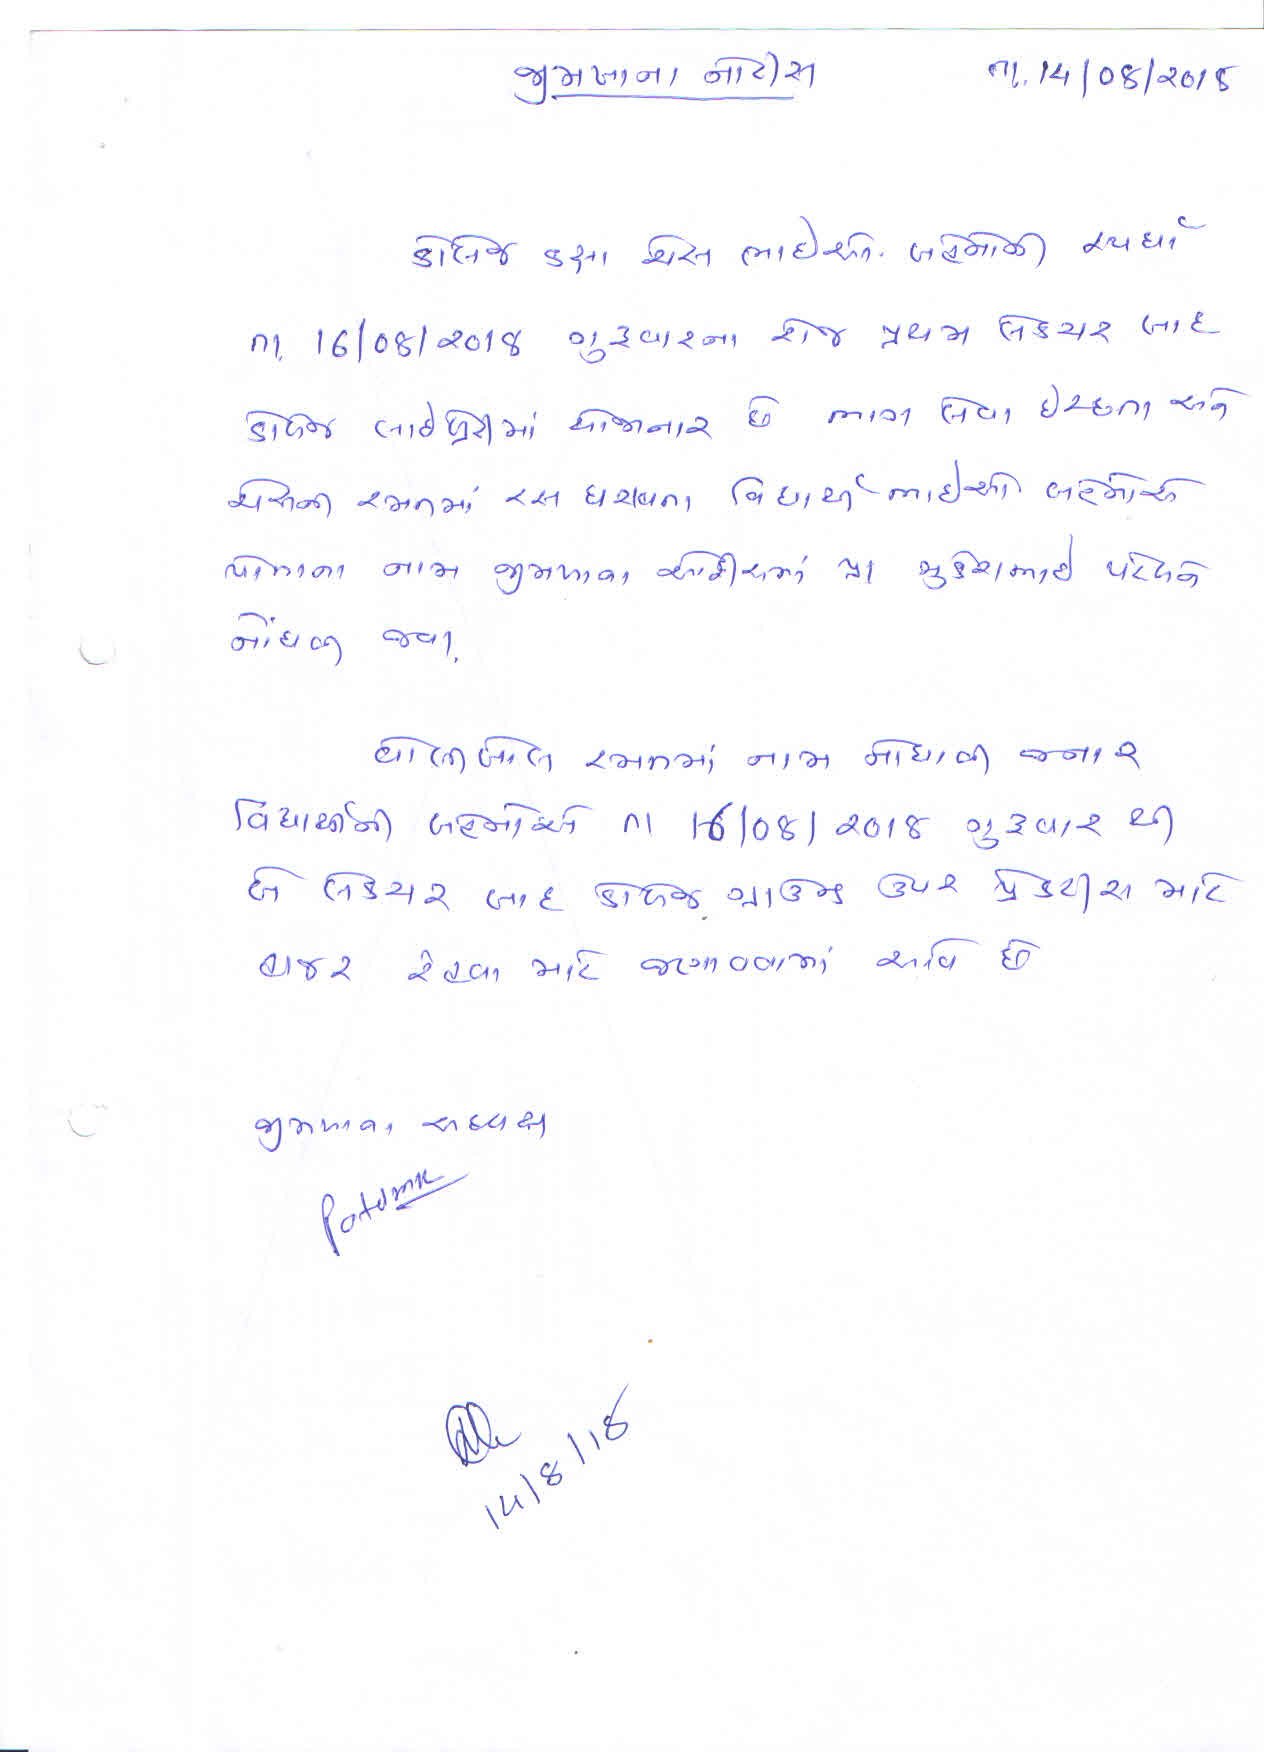 જીમખાના નોટીસ તા. 14/08/2018
કોલેજ કક્ષા ચેસ ભાઈઓ. બહેનોની સ્પર્ધા
તા. 16/08/2018 ગુરૂવારના રોજ પ્રથમ લેકચર બાદ
કોલેજ લાઈબ્રેરીમાં યોજાનાર છે ભાગ લેવા ઈચ્છતા અને
ચેસની રમતમાં રસ ધરાવતા વિદ્યાર્થી ભાઈઓ બહેનોએ
પોતાના નામ જીમખાના ઓફીસમાં પ્રા મુકેશભાઈ પટેલને
નોંધાવી જવા.
વોલીબોલ રમતમાં નામ નોંધાવી જનાર
વિદ્યાર્થીની બહેનોએ તા 16/08/2018 ગુરૂવાર થી
બે લેકચર બાદ કોલેજ ગ્રાઉન્ડ ઉપર પ્રેકટીસ માટે
હાજર રેહવા માટે જણાવવામાં આવે છે
જીમખાના અધ્યક્ષ
Patelmk
14/8/18